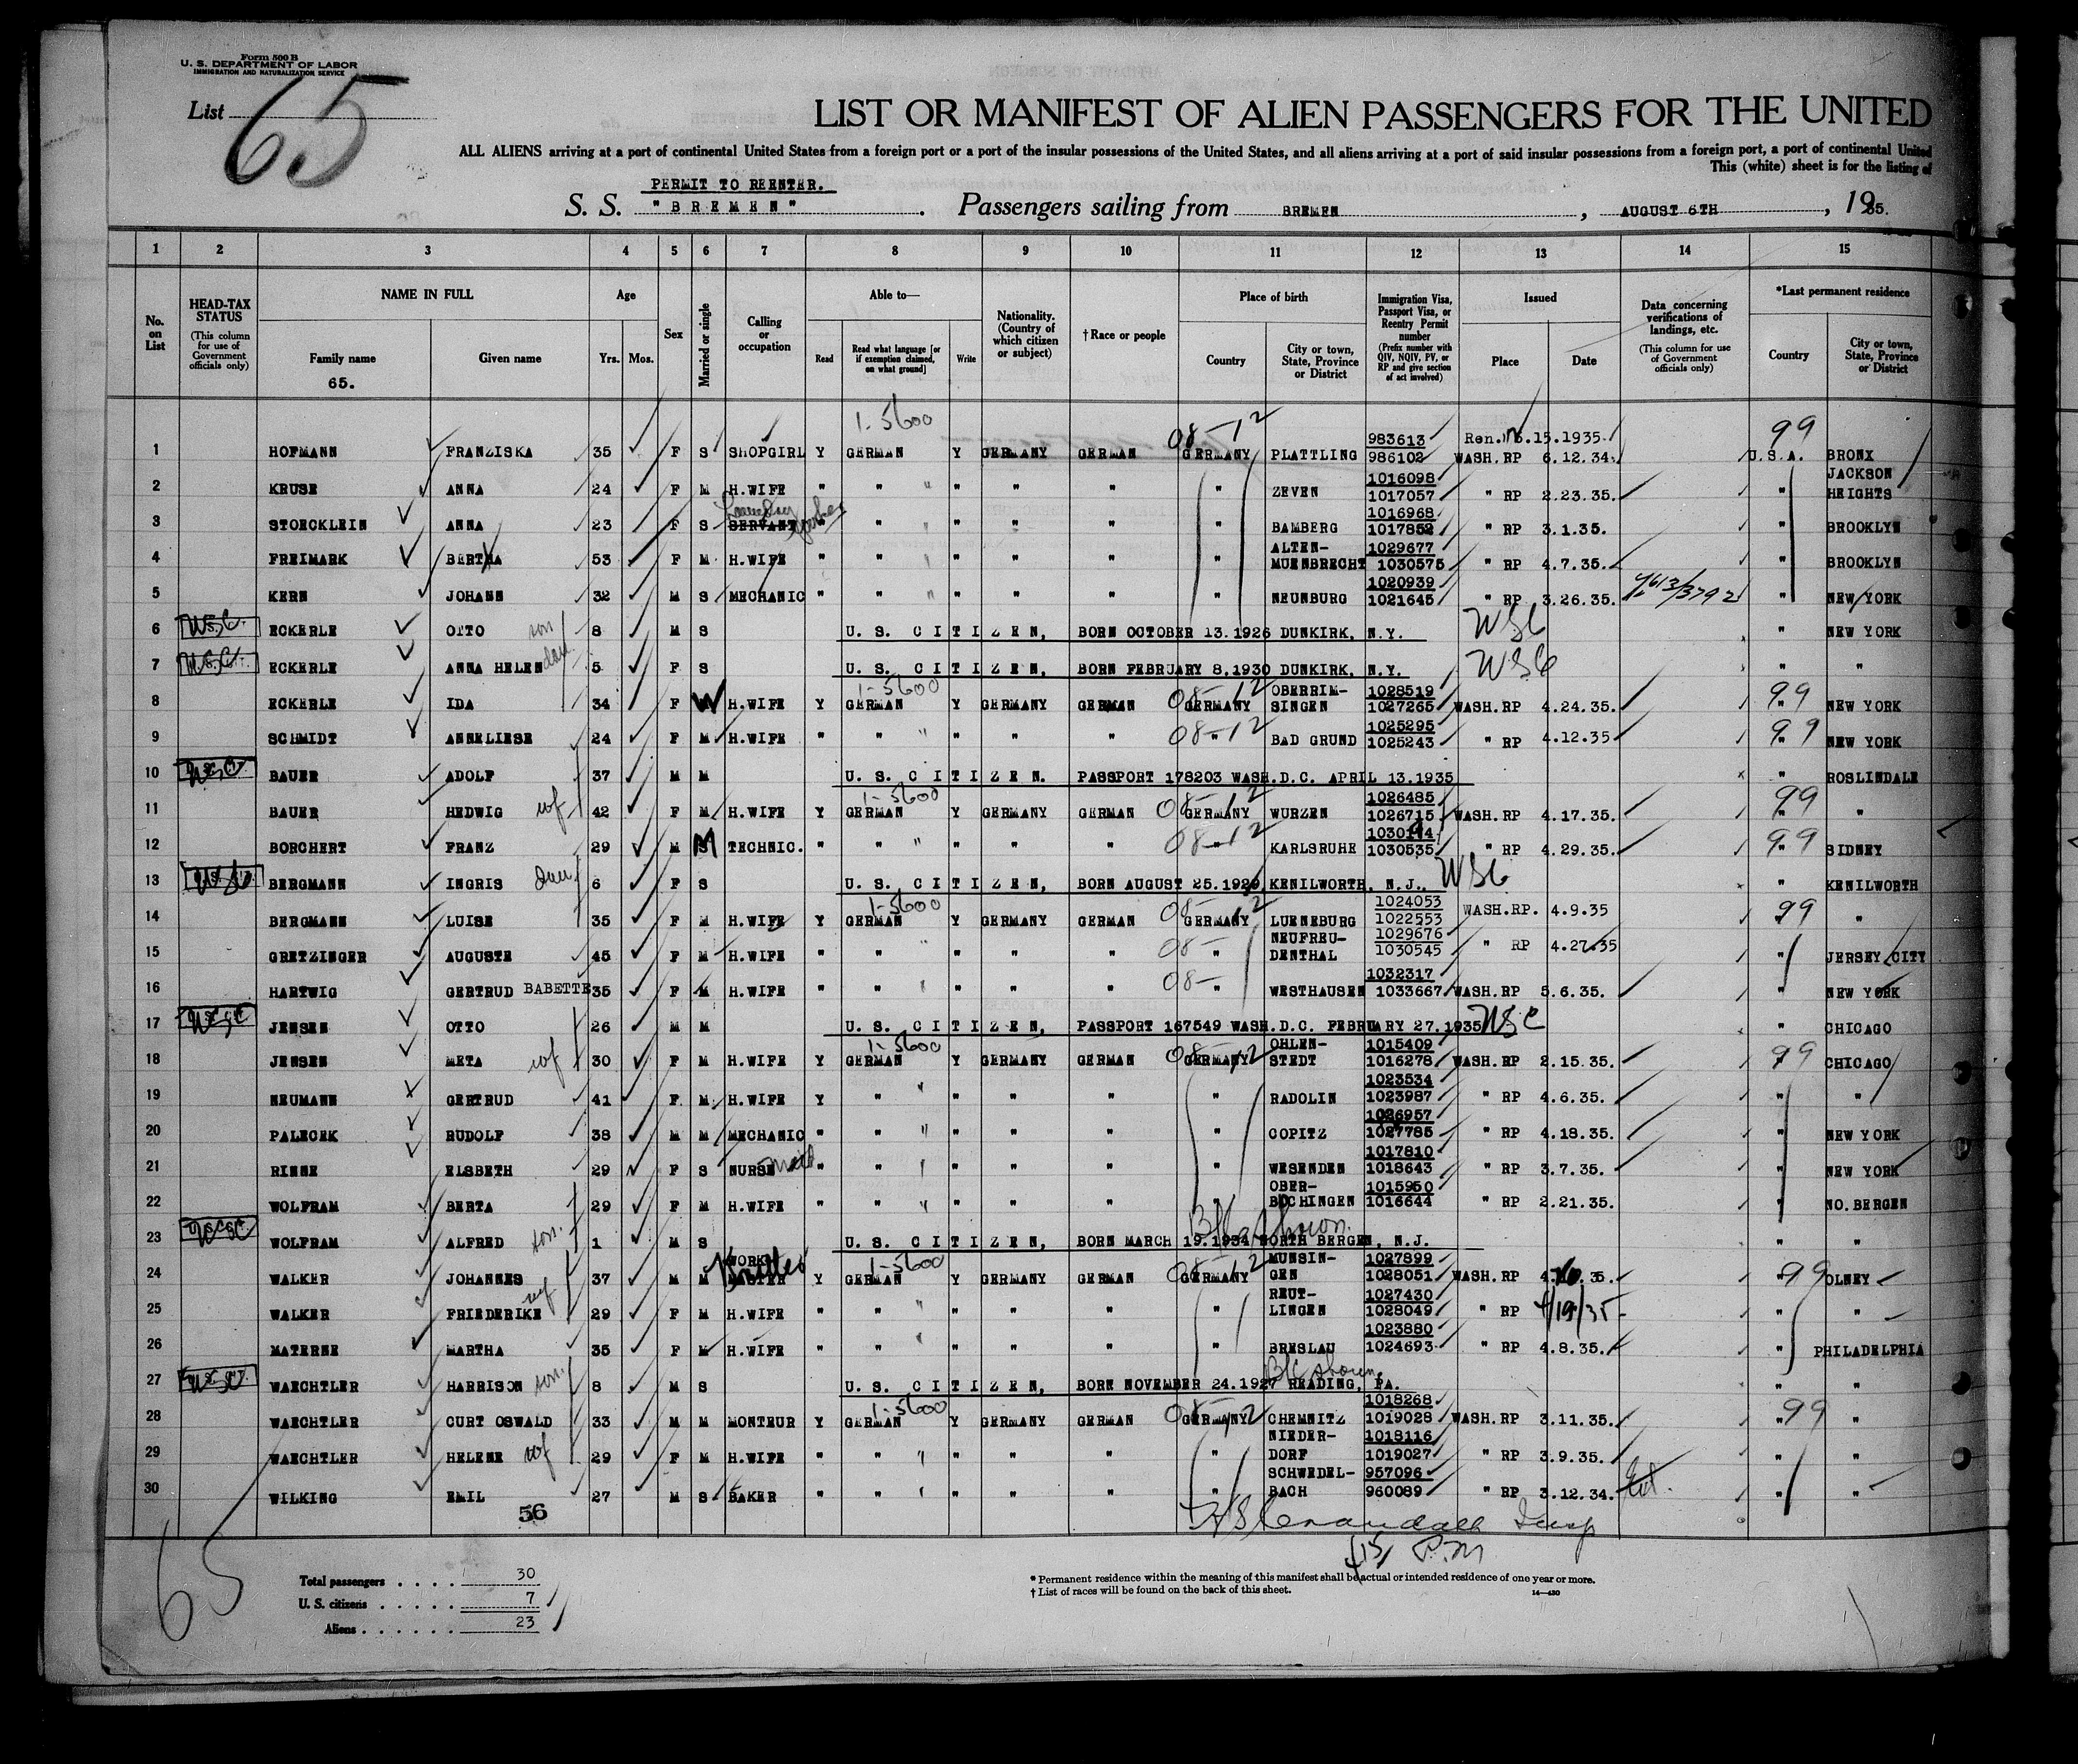 Form 500 B
U. S. DEPARTMENT OF LABOR
IMMIGRATION AND NATURALIZATION SERVICE
List 65
LIST OR MANIFEST OF ALIEN PASSENGERS FOR THE UNITED
ALL ALIENS arriving at a port of continental United States from a foreign port or a port of the insular possessions of the United States, and all aliens arriving at a port of said insular possessions from a foreign port, a port of continental United
This (white) sheet is for the listing of
PERMIT TO REENTER.
S. S. "BREMEN". Passengers sailing from BREMEN, AUGUST 6TH, 1935.
1 2 3 4 5 6 7 8 9 10 11 12 13 14 15
No. on List
HEAD-TAX STATUS (This column for use of Government officials only)
NAME IN FULL Family name Given name
65.
Age Yrs. Mos.
Sex
Married or single
Calling or occupation
Able to— Read Read what language [or if exemption claimed, on what ground] Write
Nationality. (Country of which citizen or subject)
†Race or people
Place of birth Country City or town, State, Province or District
Immigration Visa, Passport Visa, or Reentry Permit number (Prefix number with QIV, NQIV, PV, or RP and give section of act involved)
Issued Place Date
Data concerning verifications of landings, etc. (This column for use of Government officials only)
*Last permanent residence Country City or town, State, Province or District
1-5600 08-12 99
1 HOFMANN FRANZISKA 35 F S SHOPGIRL Y GERMAN Y GERMANY GERMAN GERMANY PLATTLING 983613 986102 Ren. 6.15.1935. WASH.RP 6.12.34. U.S.A. BRONX
2 KRUSE ANNA 24 F M H.WIFE " " " " " " ZEVEN 1016098 1017057 " RP 2.23.35. " JACKSON HEIGHTS
3 STOECKLEIN ANNA 23 F S SERVANT Laundry Worker " " " " " " BAMBERG 1016968 1017852 " RP 3.1.35. " BROOKLYN
4 FREIMARK BERTHA 53 F M H.WIFE " " " " " " ALTEN-MUENBRECHT 1029677 1030575 " RP 4.7.35. " BROOKLYN
5 KERN JOHANN 32 M S MECHANIC " " " " " " NEUNBURG 1020939 1021645 " RP 3.26.35. " NEW YORK
6 USC. ECKERLE OTTO son 8 M S U. S. CITIZEN, BORN OCTOBER 13.1926 DUNKIRK, N.Y. USC " NEW YORK
7 U.S.C. ECKERLE ANNA HELEN dau 5 F S U. S. CITIZEN, BORN FEBRUARY 8.1930 DUNKIRK, N.Y. USC " "
8 ECKERLE IDA 34 F W H.WIFE Y GERMAN 1-5600 Y GERMANY GERMAN 08-12 GERMANY OBERRIM-SINGEN 1028519 1027265 WASH.RP 4.24.35. 99 " NEW YORK
9 SCHMIDT ANNELIESE 24 F M H.WIFE " " " " " 08-12 " BAD GRUND 1025295 1025243 " RP 4.12.35 99 " NEW YORK
10 USC BAUER ADOLF 37 M M U. S. CITIZEN. PASSPORT 178203 WASH.D.C. APRIL 13.1935 " ROSLINDALE
11 BAUER HEDWIG wf 42 F M H.WIFE Y GERMAN 1-5600 Y GERMANY GERMAN 08-12 GERMANY WURZEN 1026485 1026715 WASH.RP 4.17.35. 99 "
12 BORCHERT FRANZ 29 M M TECHNIC. " " " " " 08-12 " KARLSRUHE 1030535 " RP 4.29.35. 99 " SIDNEY
13 USC BERGMANN INGRIS dau 6 F S U. S. CITIZEN, BORN AUGUST 25.1929, KENILWORTH, N.J., USC " KENILWORTH
14 BERGMANN LUISE 35 F M H.WIFE Y GERMAN 1-5600 Y GERMANY GERMAN 08-12 GERMANY LUENEBURG 1024053 1022553 WASH.RP. 4.9.35 99 "
15 GRETZINGER AUGUSTE 45 F M H.WIFE " " " " " 08- " NEUFREU-DENTHAL 1029676 1030545 " RP 4.27.35 " JERSEY CITY
16 HARTWIG GERTRUD BABETTE 35 F M H.WIFE " " " " " 08- " WESTHAUSEN 1032317 1033667 WASH.RP 5.6.35. " NEW YORK
17 USC JENSEN OTTO 26 M M U. S. CITIZEN, PASSPORT 167549 WASH.D.C. FEBRUARY 27.1935 USC " CHICAGO
18 JENSEN META wf 30 F M H.WIFE Y GERMAN 1-5600 Y GERMANY GERMAN 08-12 GERMANY OHLEN-STEDT 1015409 1016278 WASH.RP 2.15.35. 99 CHICAGO
19 NEUMANN GERTRUD 41 F M H.WIFE Y " " " " " RADOLIN 1023534 1023987 " RP 4.6.35. " "
20 PALECEK RUDOLF 38 M M MECHANIC " " " " " " COPITZ 1026957 1027785 " RP 4.18.35. " NEW YORK
21 RINNE ELSBETH 29 F S NURSE maid " " " " " " WESENDEN 1017810 1018643 " RP 3.7.35. " NEW YORK
22 WOLFRAM BERTA 29 F M H.WIFE " " " " " " OBER-BOCHINGEN 1015950 1016644 " RP 2.21.35. " NO.BERGEN
23 USC WOLFRAM ALFRED son. 1 M S U. S. CITIZEN, BORN MARCH 19.1934 NORTH BERGEN, N.J. B/C shown. " "
24 WALKER JOHANNES 37 M M WORK MASTER Knitter Y GERMAN 1-5600 Y GERMANY GERMAN 08-12 GERMANY MUNSIN-GEN 1027899 1028051 WASH.RP 99 OLNEY
25 WALKER FRIEDERIKE wf 29 F M H.WIFE " " " " " " REUT-LINGEN 1027430 1028049 " RP 4/19/35 " "
26 MATERNE MARTHA 35 F M H.WIFE " " " " " " BRESLAU 1023880 1024693 " RP 4.8.35. " PHILADELPHIA
27 USC WAECHTLER HARRISON son. 8 M S U. S. CITIZEN, BORN NOVEMBER 24.1927 READING, PA. B/C shown " "
28 WAECHTLER CURT OSWALD 33 M M MONTEUR Y GERMAN 1-5600 Y GERMANY GERMAN 08-12 GERMANY CHEMNITZ 1018268 1019028 WASH.RP 3.11.35. 99 " "
29 WAECHTLER HELENE wf 29 F M H.WIFE " " " " " " NIEDER-DORF 1018116 1019027 " RP 3.9.35. " "
30 WILKING EMIL 27 M S BAKER " " " " " " SCHWEDEL-BACH 957096 960089 " RP 3.12.34. Ext. " "
56
Crandall Insp
P.M
65
Total passengers . . . . 30
U. S. citizens . . . . . 7
Aliens . . . . . . 23
* Permanent residence within the meaning of this manifest shall be actual or intended residence of one year or more.
† List of races will be found on the back of this sheet.
14—430